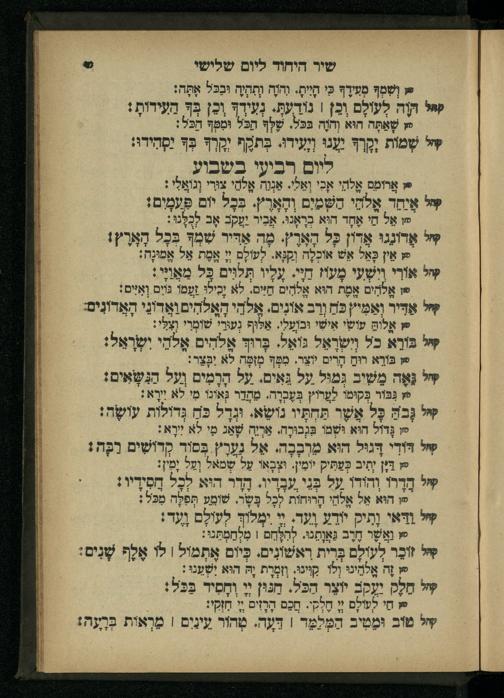 שיר היחוד ליום שלישי
חזן וְשִׁמְךָ מְעִידְךָ כִּי הָיִיתָ. וְהֹוֶה וְתִהְיֶה וּבַכֹּל אָתָּה:
קהל הֹוֶה לְעוֹלָם וְכֵן | נוֹדַעְתָּ. נְעִידְךָ וְכֵן בְּךָ הַעִידוֹתָ:
חזן שֶׁאַתָּה הוּא וְהֹוֶה בַּכֹּל. שֶׁלְּךָ הַכֹּל וּמִמְּךָ הַכֹּל:
קהל שְׁמוֹת יְקָרְךָ יַעֲנוּ וְיָעִידוּ. בְּתֹקֶף יְקָרְךָ בְּךָ יַסְהִידוּ:
ליום רביעי בשבוע
חזן אֲרוֹמֵם אֱלֹהֵי אָבִי וְאֵלִי. אַנְוֵה אֱלֹהֵי צוּרִי וְגוֹאֲלִי:
קהל אֲיַחֵד אֱלֹהֵי הַשָּׁמַיִם וְהָאָרֶץ. בְּכָל יוֹם פַּעֲמָיִם:
חזן אֵל חַי אֶחָד הוּא בְרָאָנוּ. אֲבִיר יַעֲקֹב אָב לְכֻלָּנוּ:
קהל אֲדוֹנֵנוּ אֲדוֹן כָּל הָאָרֶץ. מָה אַדִּיר שִׁמְךָ בְּכָל הָאָרֶץ:
חזן אֵין כָּאֵל אֵשׁ אוֹכְלָה וְקַנָּא. לְעוֹלָם יְיָ אֱמֶת אֵל אֱמוּנָה:
קהל אוֹרִי וְיִשְׁעִי מָעוֹז חַיָּי. עָלָיו תְּלוּיִם כָּל מַאֲוַיָּי:
חזן אֱלֹהִים אֱמֶת הוּא אֱלֹהִים חַיִּים. לֹא יָכִילוּ זַעְמוֹ גּוֹיִם וְאִיִּים:
קהל אַדִּיר וְאַמִּיץ כֹּחַ וְרַב אוֹנִים. אֱלֹהֵי הָאֱלֹהִים וַאֲדוֹנֵי הָאֲדוֹנִים:
חזן אֱלוֹהַּ עוֹשִׂי אִישִׁי וּבוֹעֲלִי. אַלּוּף נְעוּרַי שׁוֹמְרִי וְצִלִּי:
קהל בּוֹרֵא כֹל וְיִשְׂרָאֵל גּוֹאֵל. בָּרוּךְ אֱלֹהִים אֱלֹהֵי יִשְׂרָאֵל:
חזן בּוֹרֵא רוּחַ הָרִים יוֹצֵר. מִמְּךָ מְזִמָּה לֹא יִבָּצֵר:
קהל גֵּאֶה מֵשִׁיב גְּמוּל עַל גֵּאִים. עַל הָרָמִים וְעַל הַנִּשָּׂאִים:
חזן גִּבּוֹר בְּקוּמוֹ לַעֲרוֹץ בְּעֶבְרָה. מֵהֲדַר גְּאוֹנוֹ מִי לֹא יִירָא:
קהל גָּבֹהַּ כָּל אֲשֶׁר תַּחְתָּיו נוֹשֵׂא. וּגְדָל כֹּחַ גְּדוֹלוֹת עוֹשֶׂה:
חזן גָּדוֹל הוּא וּשְׁמוֹ בִּגְבוּרָה. אַרְיֵה שָׁאַג מִי לֹא יִירָא:
קהל דּוֹדִי דָּגוּל הוּא מֵרְבָבָה. אֵל נַעֲרָץ בְּסוֹד קְדוֹשִׁים רַבָּה:
חזן דַּיָּן יְתִיב כְּעַתִּיק יוֹמִין. וּצְבָאוֹ עַל שְׂמֹאל וְעַל יָמִין:
קהל הֲדָרוֹ וְהוֹדוֹ עַל בְּנֵי עֲבָדָיו. הָדָר הוּא לְכָל חֲסִידָיו:
חזן הוּא אֵל אֱלֹהֵי הָרוּחוֹת לְכָל בָּשָׂר. שׁוֹמֵעַ תְּפִלָּה מִכֹּל:
קהל וַדַּאי וָתִיק יוֹדֵעַ וָעֵד. יְיָ יִמְלוֹךְ לְעוֹלָם וָעֶד:
חזן וַאֲשֶׁר חֶרֶב גַּאֲוָתֵנוּ. לְהִלָּחֵם | מִלְחַמְתֵּנוּ:
קהל זוֹכֵר לְעוֹלָם בְּרִית רִאשׁוֹנִים. כְּיוֹם אֶתְמוֹל | לוֹ אֶלֶף שָׁנִים:
חזן זֶה אֱלֹהֵינוּ וְלוֹ קִוִּינוּ. וְזִמְרָת יָהּ הוּא יִשְׁעֵנוּ:
קהל חֵלֶק יַעֲקֹב יוֹצֵר הַכֹּל. חַנּוּן יְיָ וְחָסִיד בַּכֹּל:
חזן חַי לְעוֹלָם יְיָ חֶלְקִי. חֲכַם הָרָזִים יְיָ חִזְקִי:
קהל טוֹב וּמֵטִיב הַמְלַמֵּד | דָּעַה. טְהוֹר עֵינַיִם | מֵרְאוֹת בְּרָעָה: